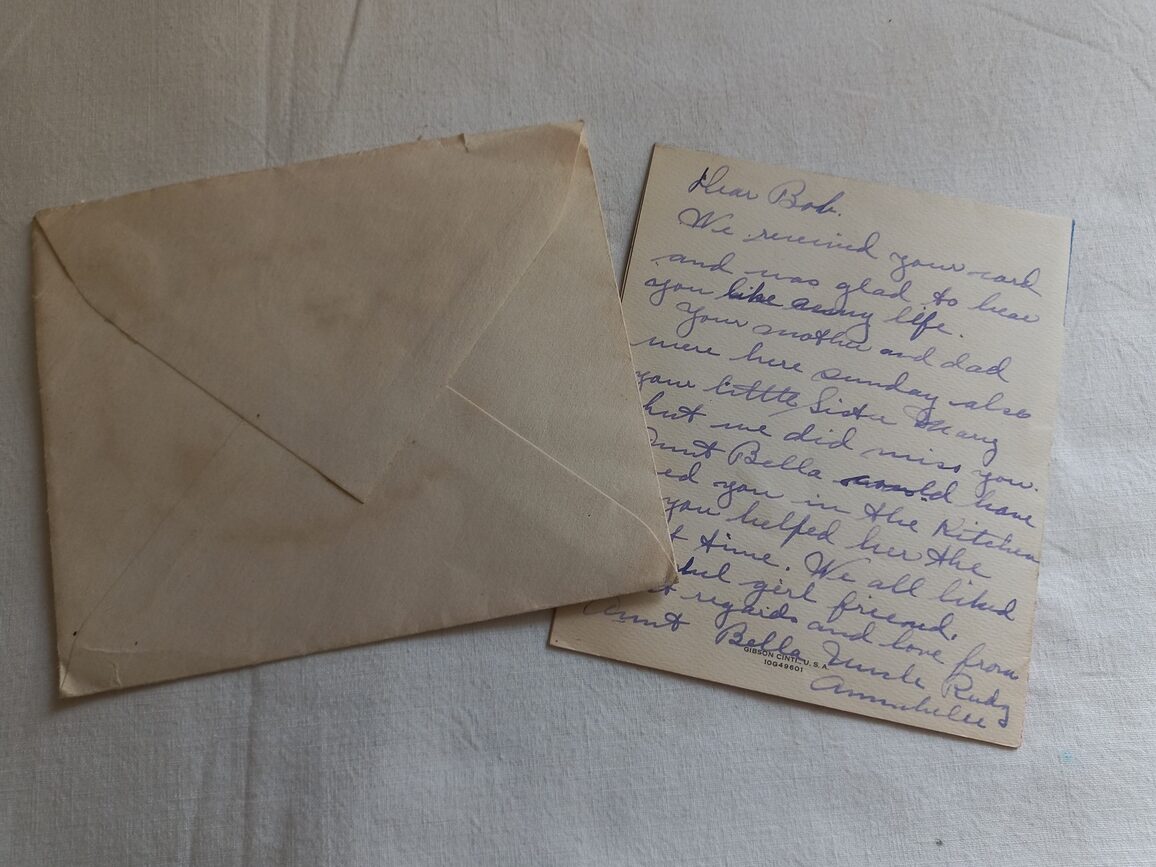 Dear Bob.
We received your card
and was glad to hear
you like army life.
Your mother and dad
were here sunday also
your little Sister Mary
but we did miss you.
Aunt Bella would have
ed you in the Kitchen
you helped her the
t time. We all liked
girl friend.
t regards and love from
Aunt Bella Uncle Rudy
Annabelle
GIBSON CINTI., U.S.A.
10G49601